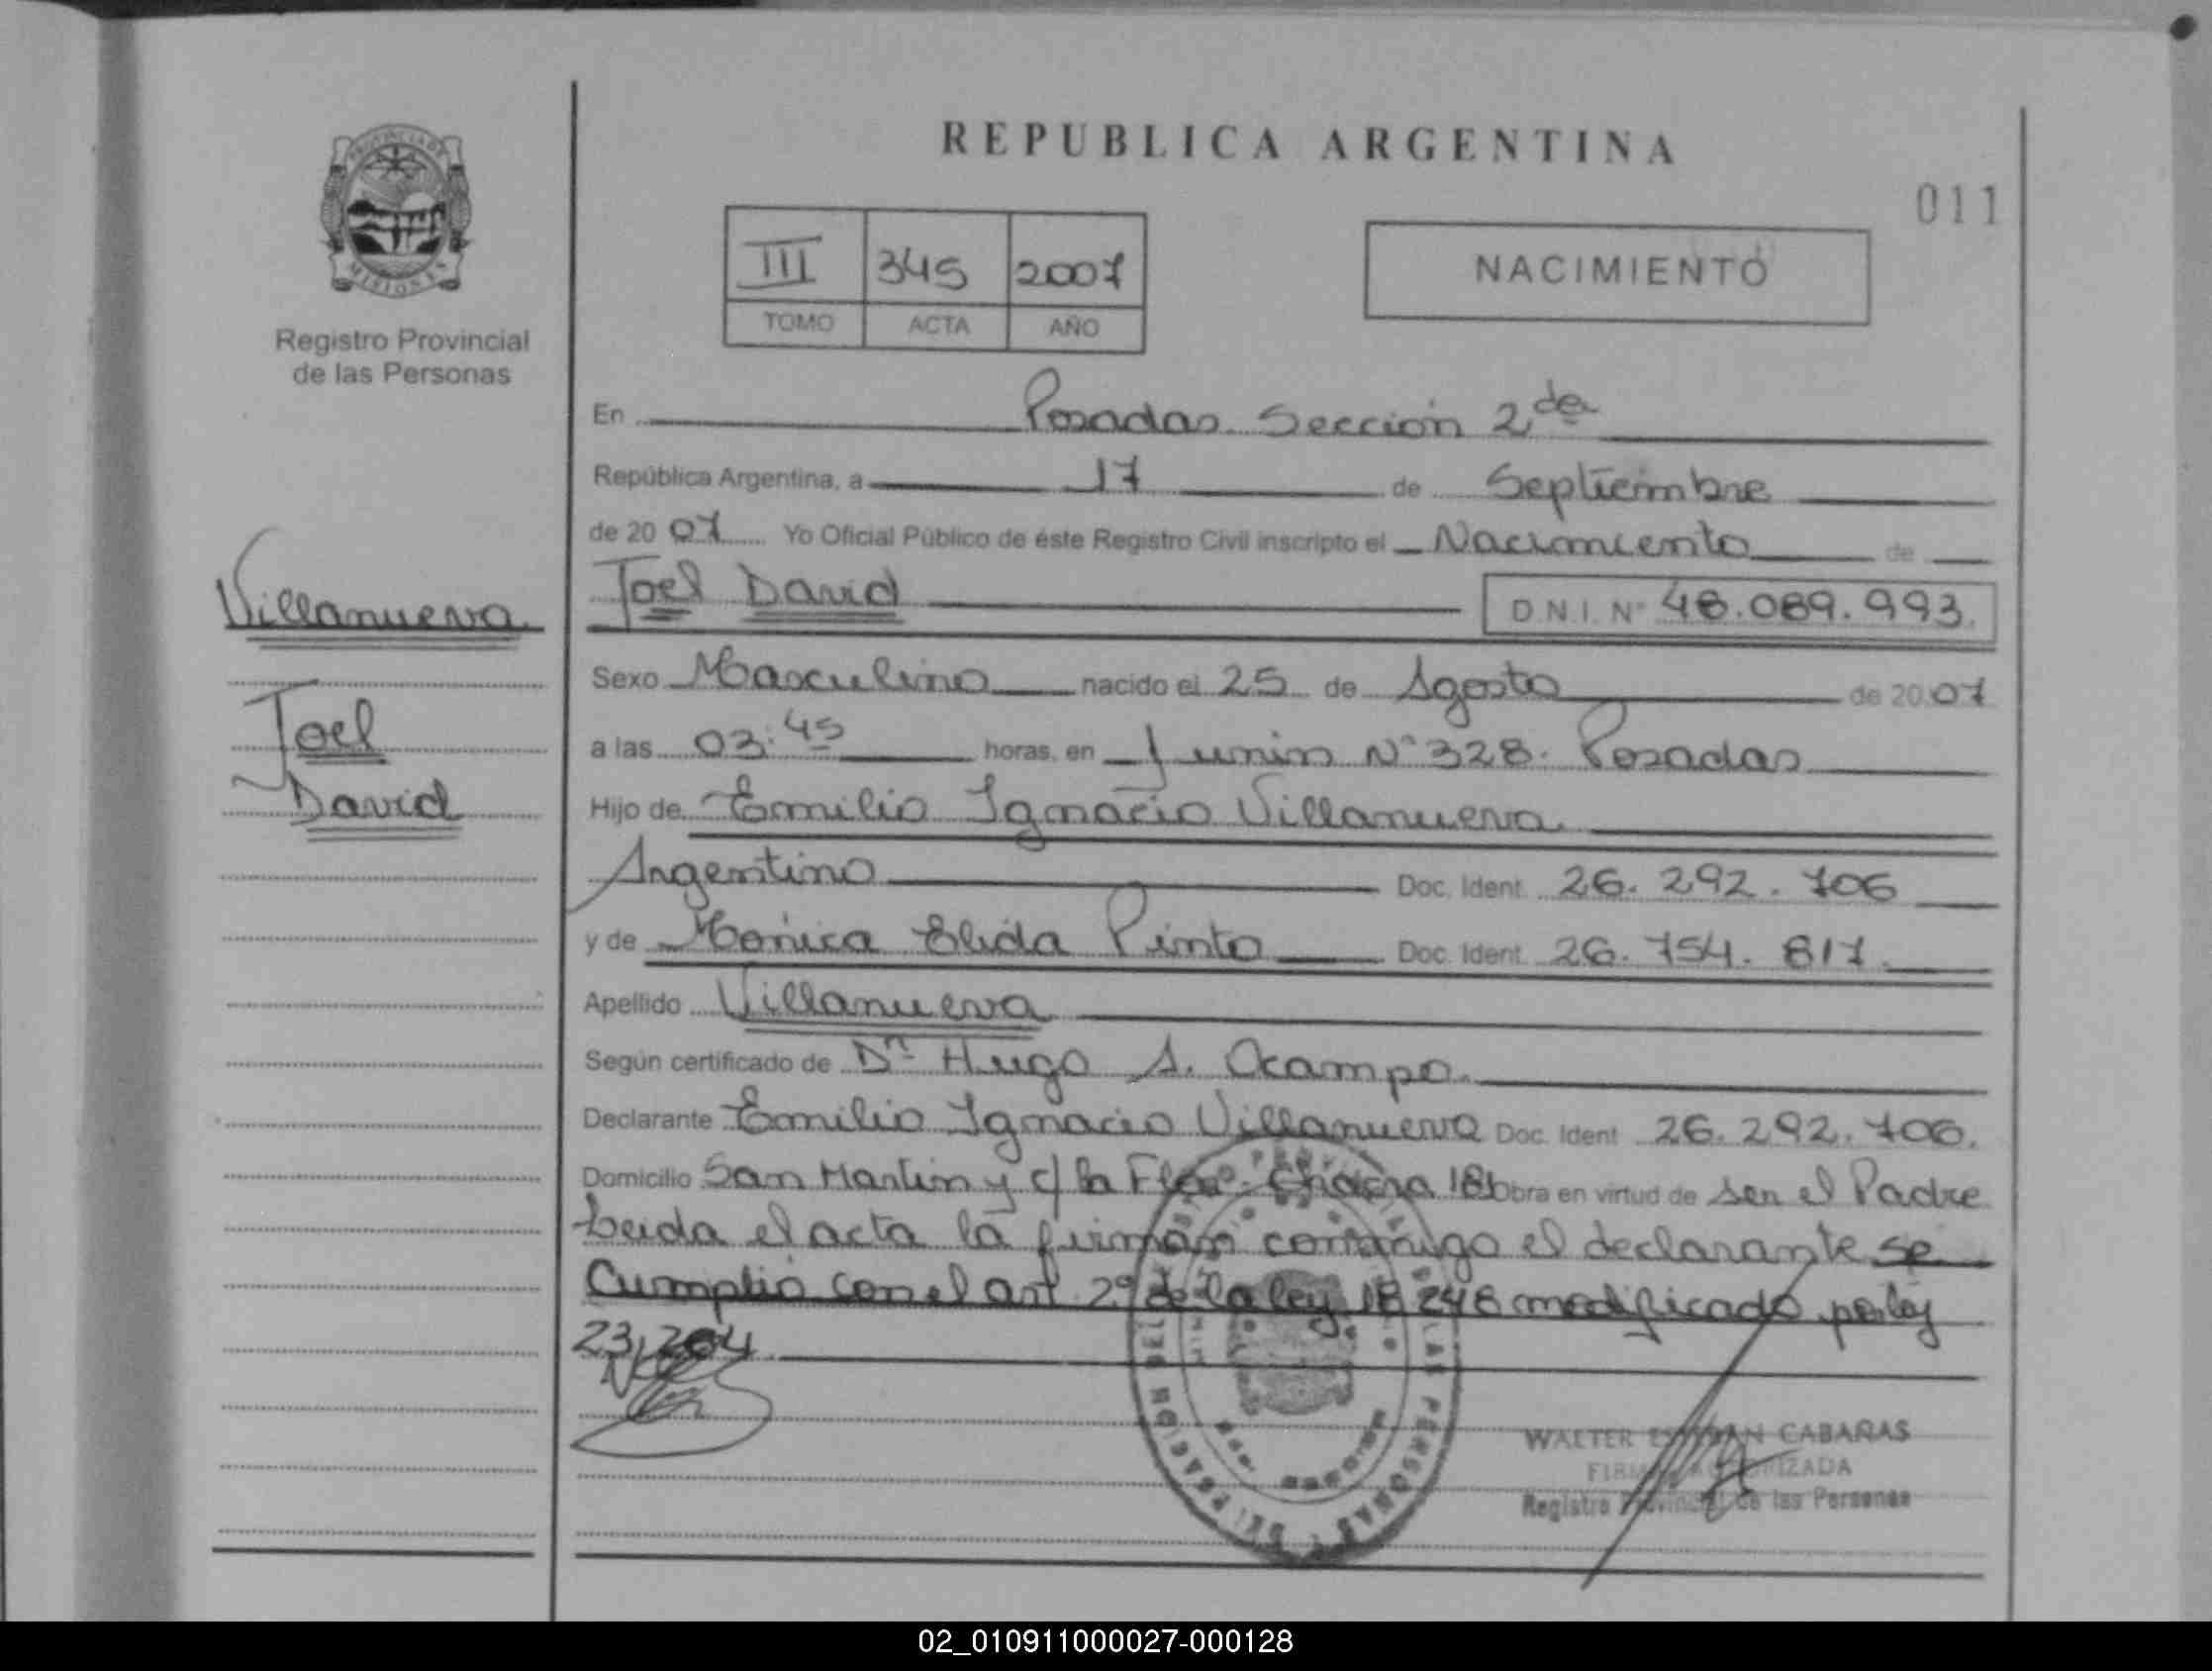 REPUBLICA ARGENTINA
011
PROVINCIA DE MISIONES
Registro Provincial
de las Personas
III 345 2007
TOMO ACTA AÑO
NACIMIENTO
En Posadas Sección 2da
República Argentina, a 17 de Septiembre
de 20 07 Yo Oficial Público de éste Registro Civil inscripto el Nacimiento de
Joel David D.N.I. Nº 48.089.993.
Villanueva
Joel
David
Sexo Masculino nacido el 25 de Agosto de 20 07
a las 03:45 horas, en Junin Nº 328. Posadas
Hijo de Emilio Ignacio Villanueva
Argentino Doc. Ident. 26.292.706
y de Monica Elida Pinto Doc. Ident. 26.754.817.
Apellido Villanueva
Según certificado de Dr Hugo A. Ocampo.
Declarante Emilio Ignacio Villanueva Doc. Ident 26.292.706.
Domicilio San Martin y c/ la Flor. Chacra 181 obra en virtud de ser el Padre
Leida el acta la firman conmigo el declarante se
Cumplio con el art 29 de la ley 18 248 modificado por ley
23,264
WALTER CABAÑAS
FIRMA AUTORIZADA
Registro Provincial de las Personas
02_010911000027-000128